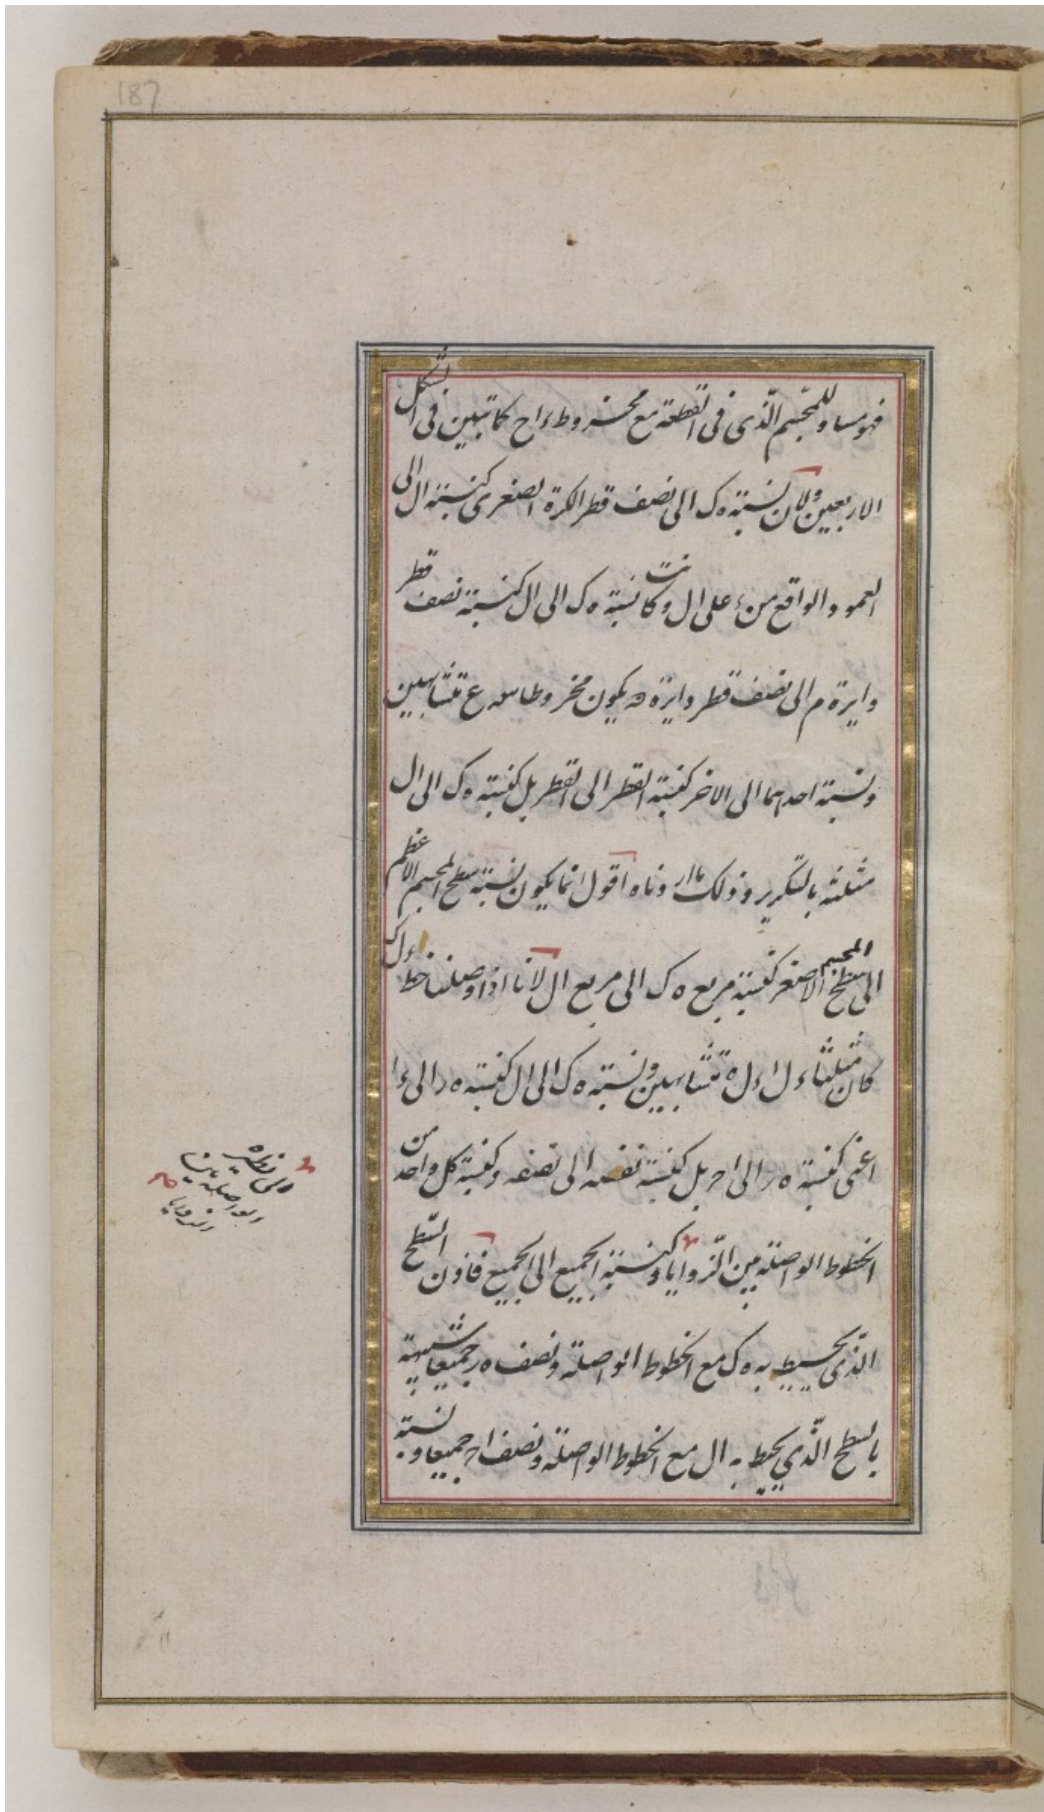 187
فهو مساو للمجسم الذى فى القطعة مع مخروط ءاح كما تبين فى الشكل
الاربعين ولان نسبة ه ك الى نصف قطر الكرة الصغرى كنسبة ال الى
العمود الواقع من ء على ال وكانت نسبة ه ك الى ال كنسبة نصف قطر
دايرة م الى نصف قطر دايرة يكون مخروطا ع متشابهين
ونسبة احدهما الى الاخر كنسبة القطر الى القطر بل كنسبة ه ك الى ال
مثلثة بالتكرير وذلك ما اردناه اقول انما يكون نسبة سطح المجسم الاعظم
الى سطح المجسم الاصغر كنسبة مربع ه ك الى مربع ال لانا اذا وصلنا خط ء ك
كان مثلثا ء ل ا ء ل ه متشابهين ونسبة ه ك الى ال كنسبة ه ر الى ء ا
اعنى كنسبة ه ر الى اح بل كنسبة نصفه الى نصفه وكنسبة كل واحد من
الخطوط الواصلة بين الزوايا وكنسبة الجميع الى الجميع فاذن السطح
الذى يحيط به ه ك مع الخطوط الواصلة ونصف ه ر جميعا شبيهة
بالسطح الذي يحيط به ال مع الخطوط الواصلة ونصف اح جميعا ونسبة
الى نظيره
الواصلة بين
الزوايا